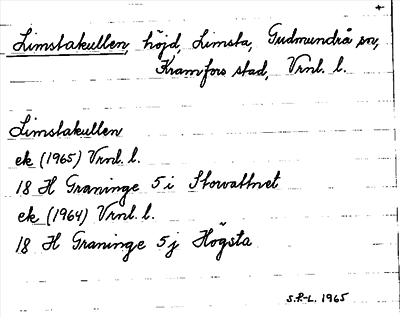 +
Limstakullen, höjd, Limsta, Gudmundrå sn,
Kramfors stad, Vrnl. l.
Limstakullen
ek (1965) Vrnl. l.
18 H Graninge 5 i Storvattnet
ek (1964) Vrnl. l.
18 H Graninge 5 j Högsta
S.F-L. 1965